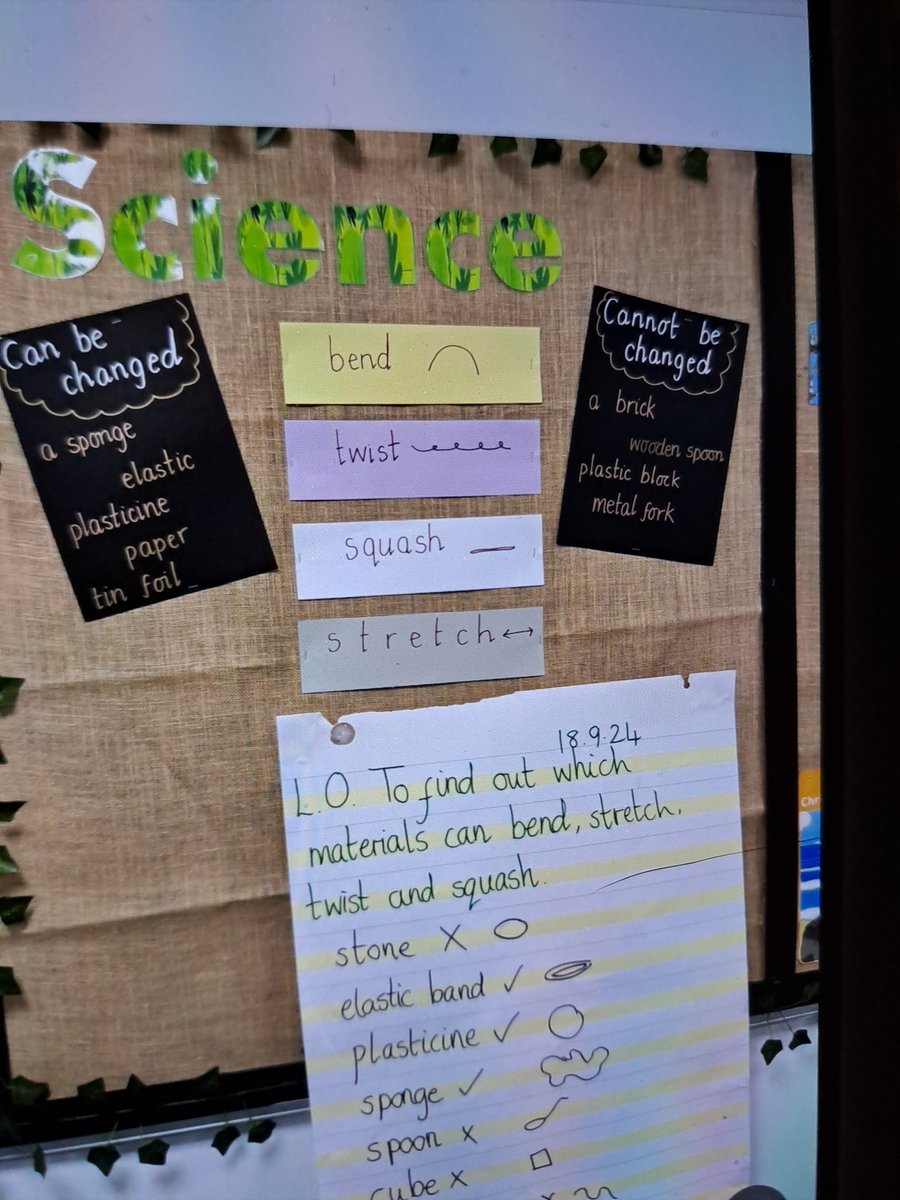 Science
Can be
changed
a sponge
elastic
plasticine
paper
tin foil
bend
twist
squash
stretch
Cannot be
changed
a brick
wooden spoon
plastic block
metal fork
18.9.24
L.O. To find out which
materials can bend, stretch,
twist and squash.
stone X
elastic band ✓
plasticine ✓
sponge ✓
spoon x
cube x